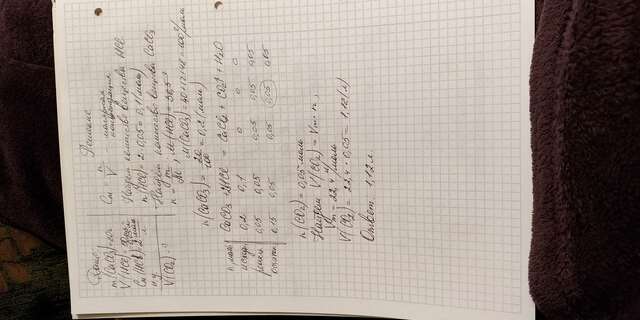 Дано:
m(CaCO3)=20г
V(HCl)=
Cм(HCl)=2
н.у.
V(CO2)-?
Решение
Cм = n/V молярная концентрация
Найдем количество вещества HCl
n(HCl)=2·0,05=0,1(моль)
Найдем количество вещества CaCO3
n = m/M, M(HCl)=36,5
M(CaCO3)=40+12+48=100г/моль
n(CaCO3)=20/100=0,2(моль)
CaCO3+2HCl=CaCl2+CO2↑+H2O
n, моль
исход. 0,2 0,1 0 0 0
реаг. 0,05 0,05 0,05 0,05 0,05
0,15 0,05 0,05 0,05 0,05
n(CO2)=0,05 моль
Найдем V(CO2)=Vm·n,
Vm=22,4 л/моль
V(CO2)=22,4·0,05=1,12(л)
Ответ: 1,12 л.